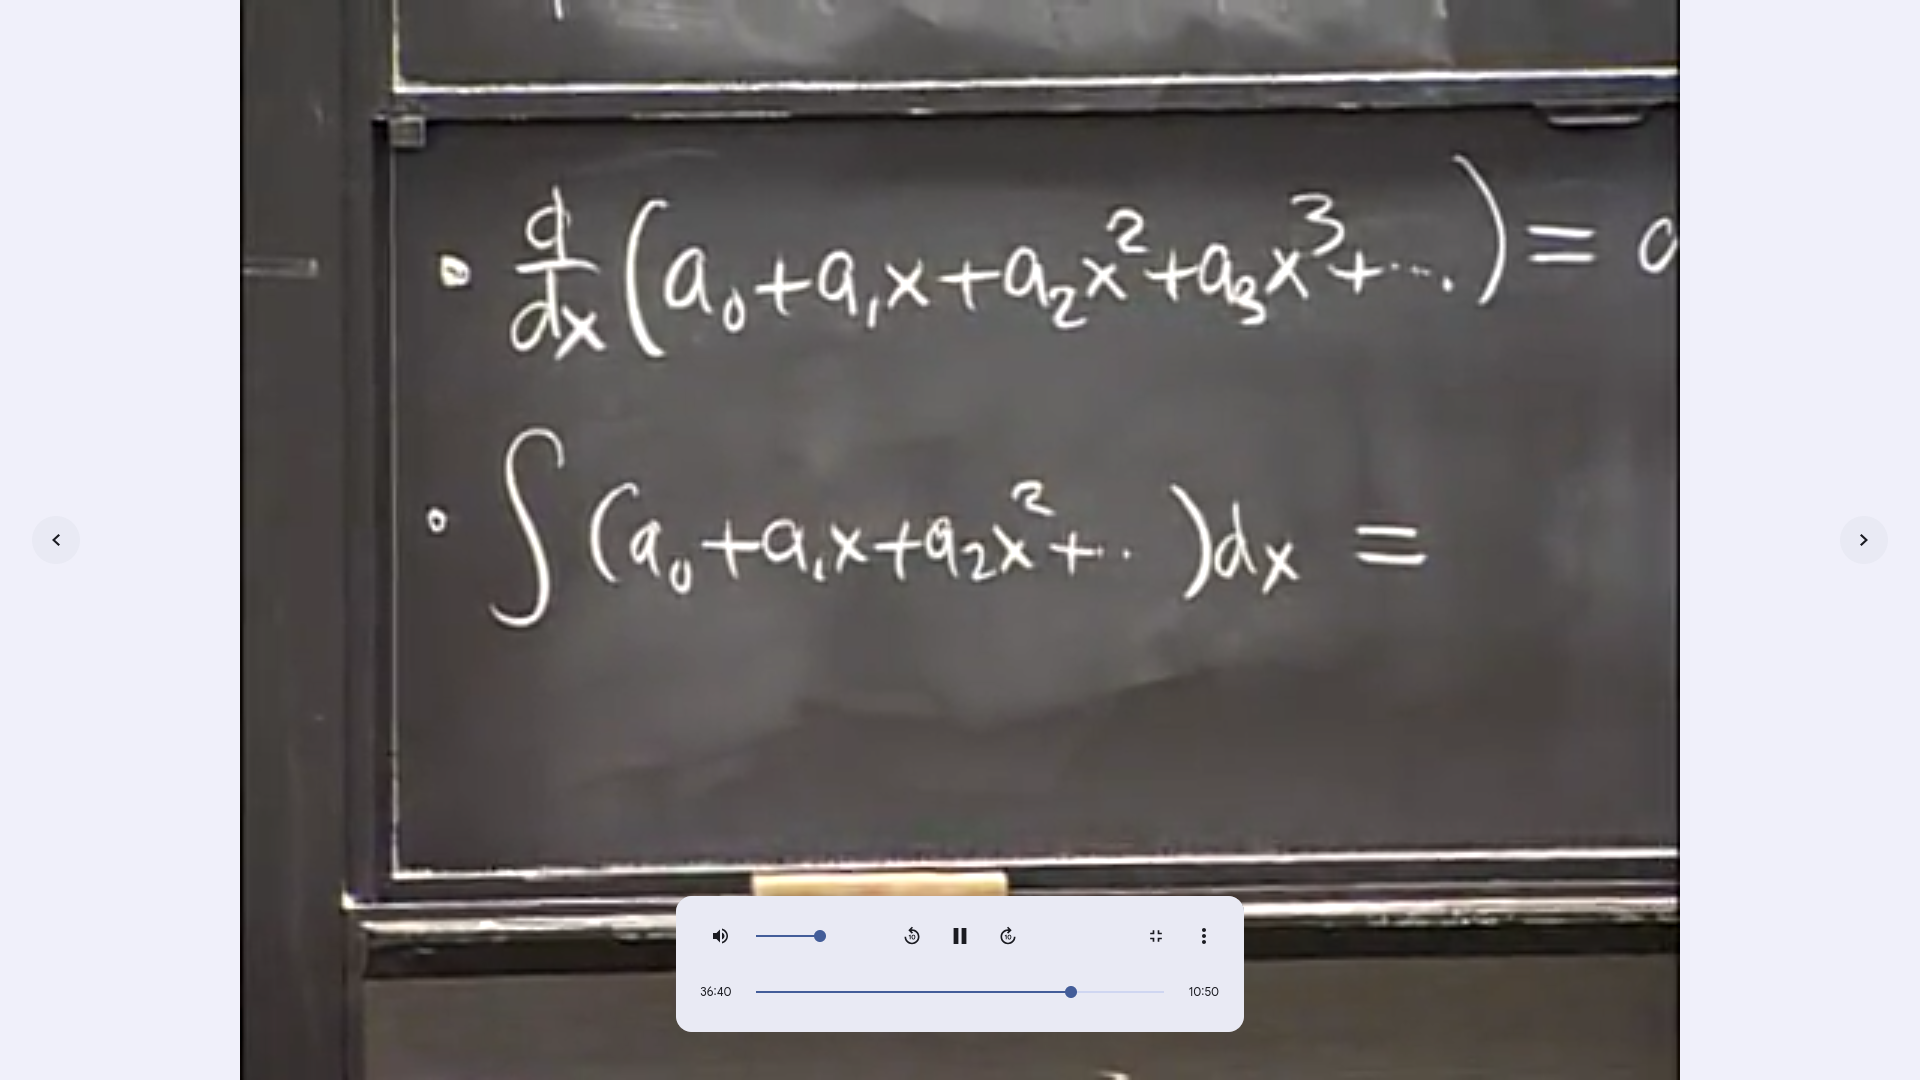 • d/dx (a₀+a₁x+a₂x²+a₃x³+···.) = a
• ∫ (a₀+a₁x+a₂x²+··.)dx =
36:40
10:50